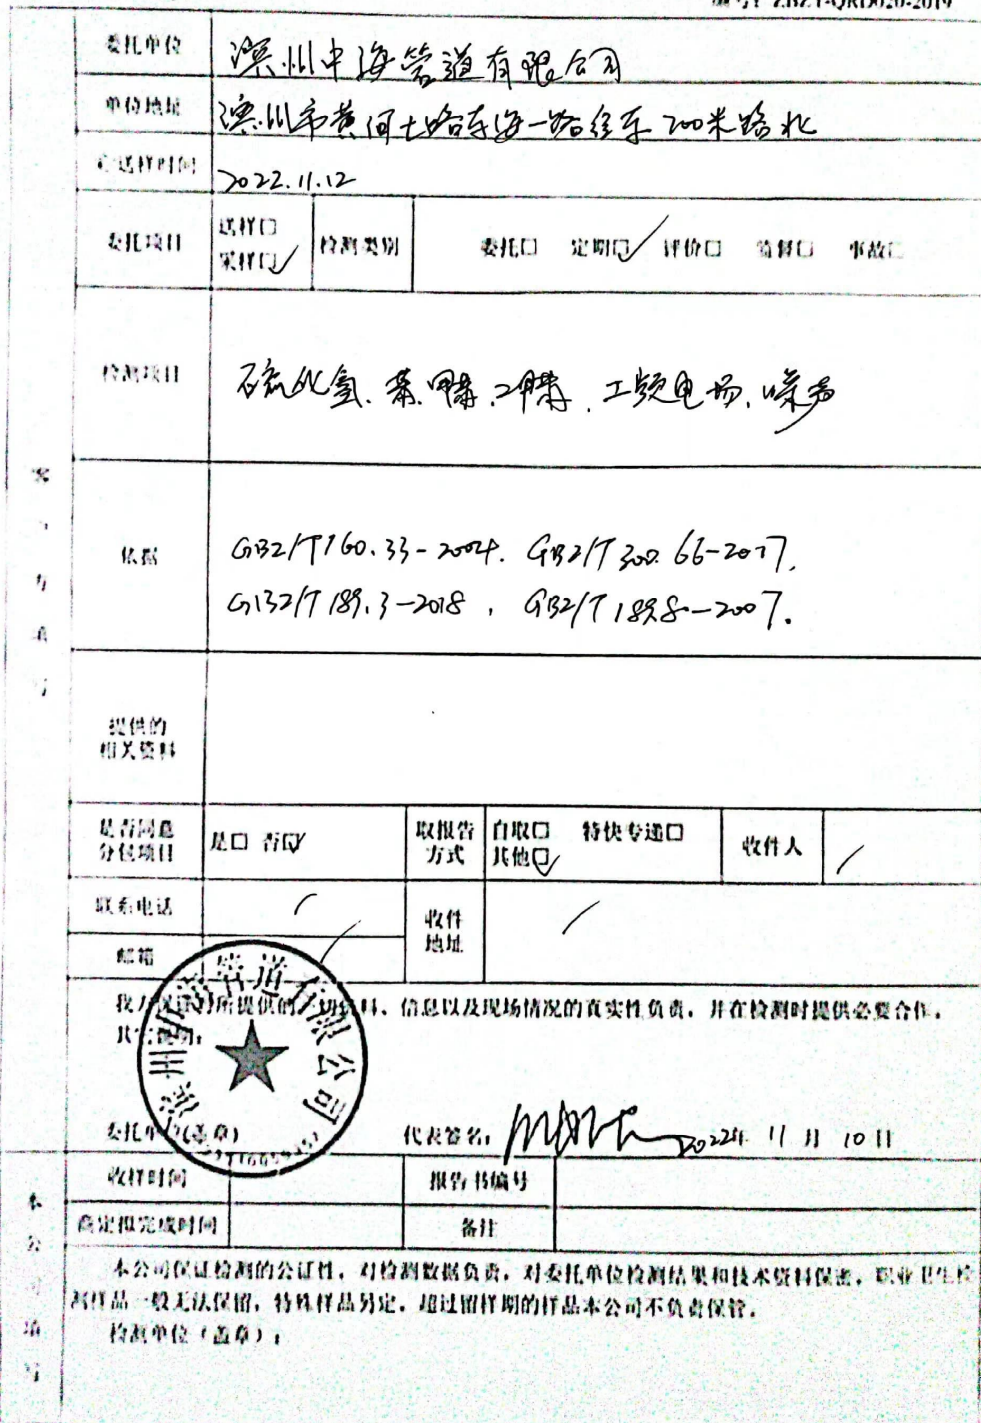 编号: ZBZY-QRD020-2019
委托单位 滨州中海管道有限公司
单位地址 滨州市黄河七路东海一路往东200米路北
送样时间 2022.11.12
委托项目 送样☐ 采样☑ 检测类别 委托☐ 定期☑ 评价☐ 监督☐ 事故☐
检测项目 硫化氢、苯、甲苯、二甲苯、工频电场、噪声
依据 GBZ/T160.33-2004. GBZ/T300.66-2017.
GBZ/T 189.3-2018, GBZ/T 189.8-2007.
客户填写
提供的
相关资料
是否同意分包项目 是☐ 否☑ 取报告方式 自取☐ 特快专递☐ 其他☑ 收件人 /
联系电话 / 收件地址 /
邮箱 /
我方保证对所提供的一切资料、信息以及现场情况的真实性负责,并在检测时提供必要合作。
其它说明:
委托单位(盖章) 代表签名: 2022年 11 月 10 日
管道有限公司
收样时间 报告书编号
商定拟完成时间 备注
本公司填写
本公司保证检测的公证性,对检测数据负责,对委托单位检测结果和技术资料保密,职业卫生检
测样品一般无法保留,特殊样品另定,超过留样期的样品本公司不负责保管。
检测单位(盖章):